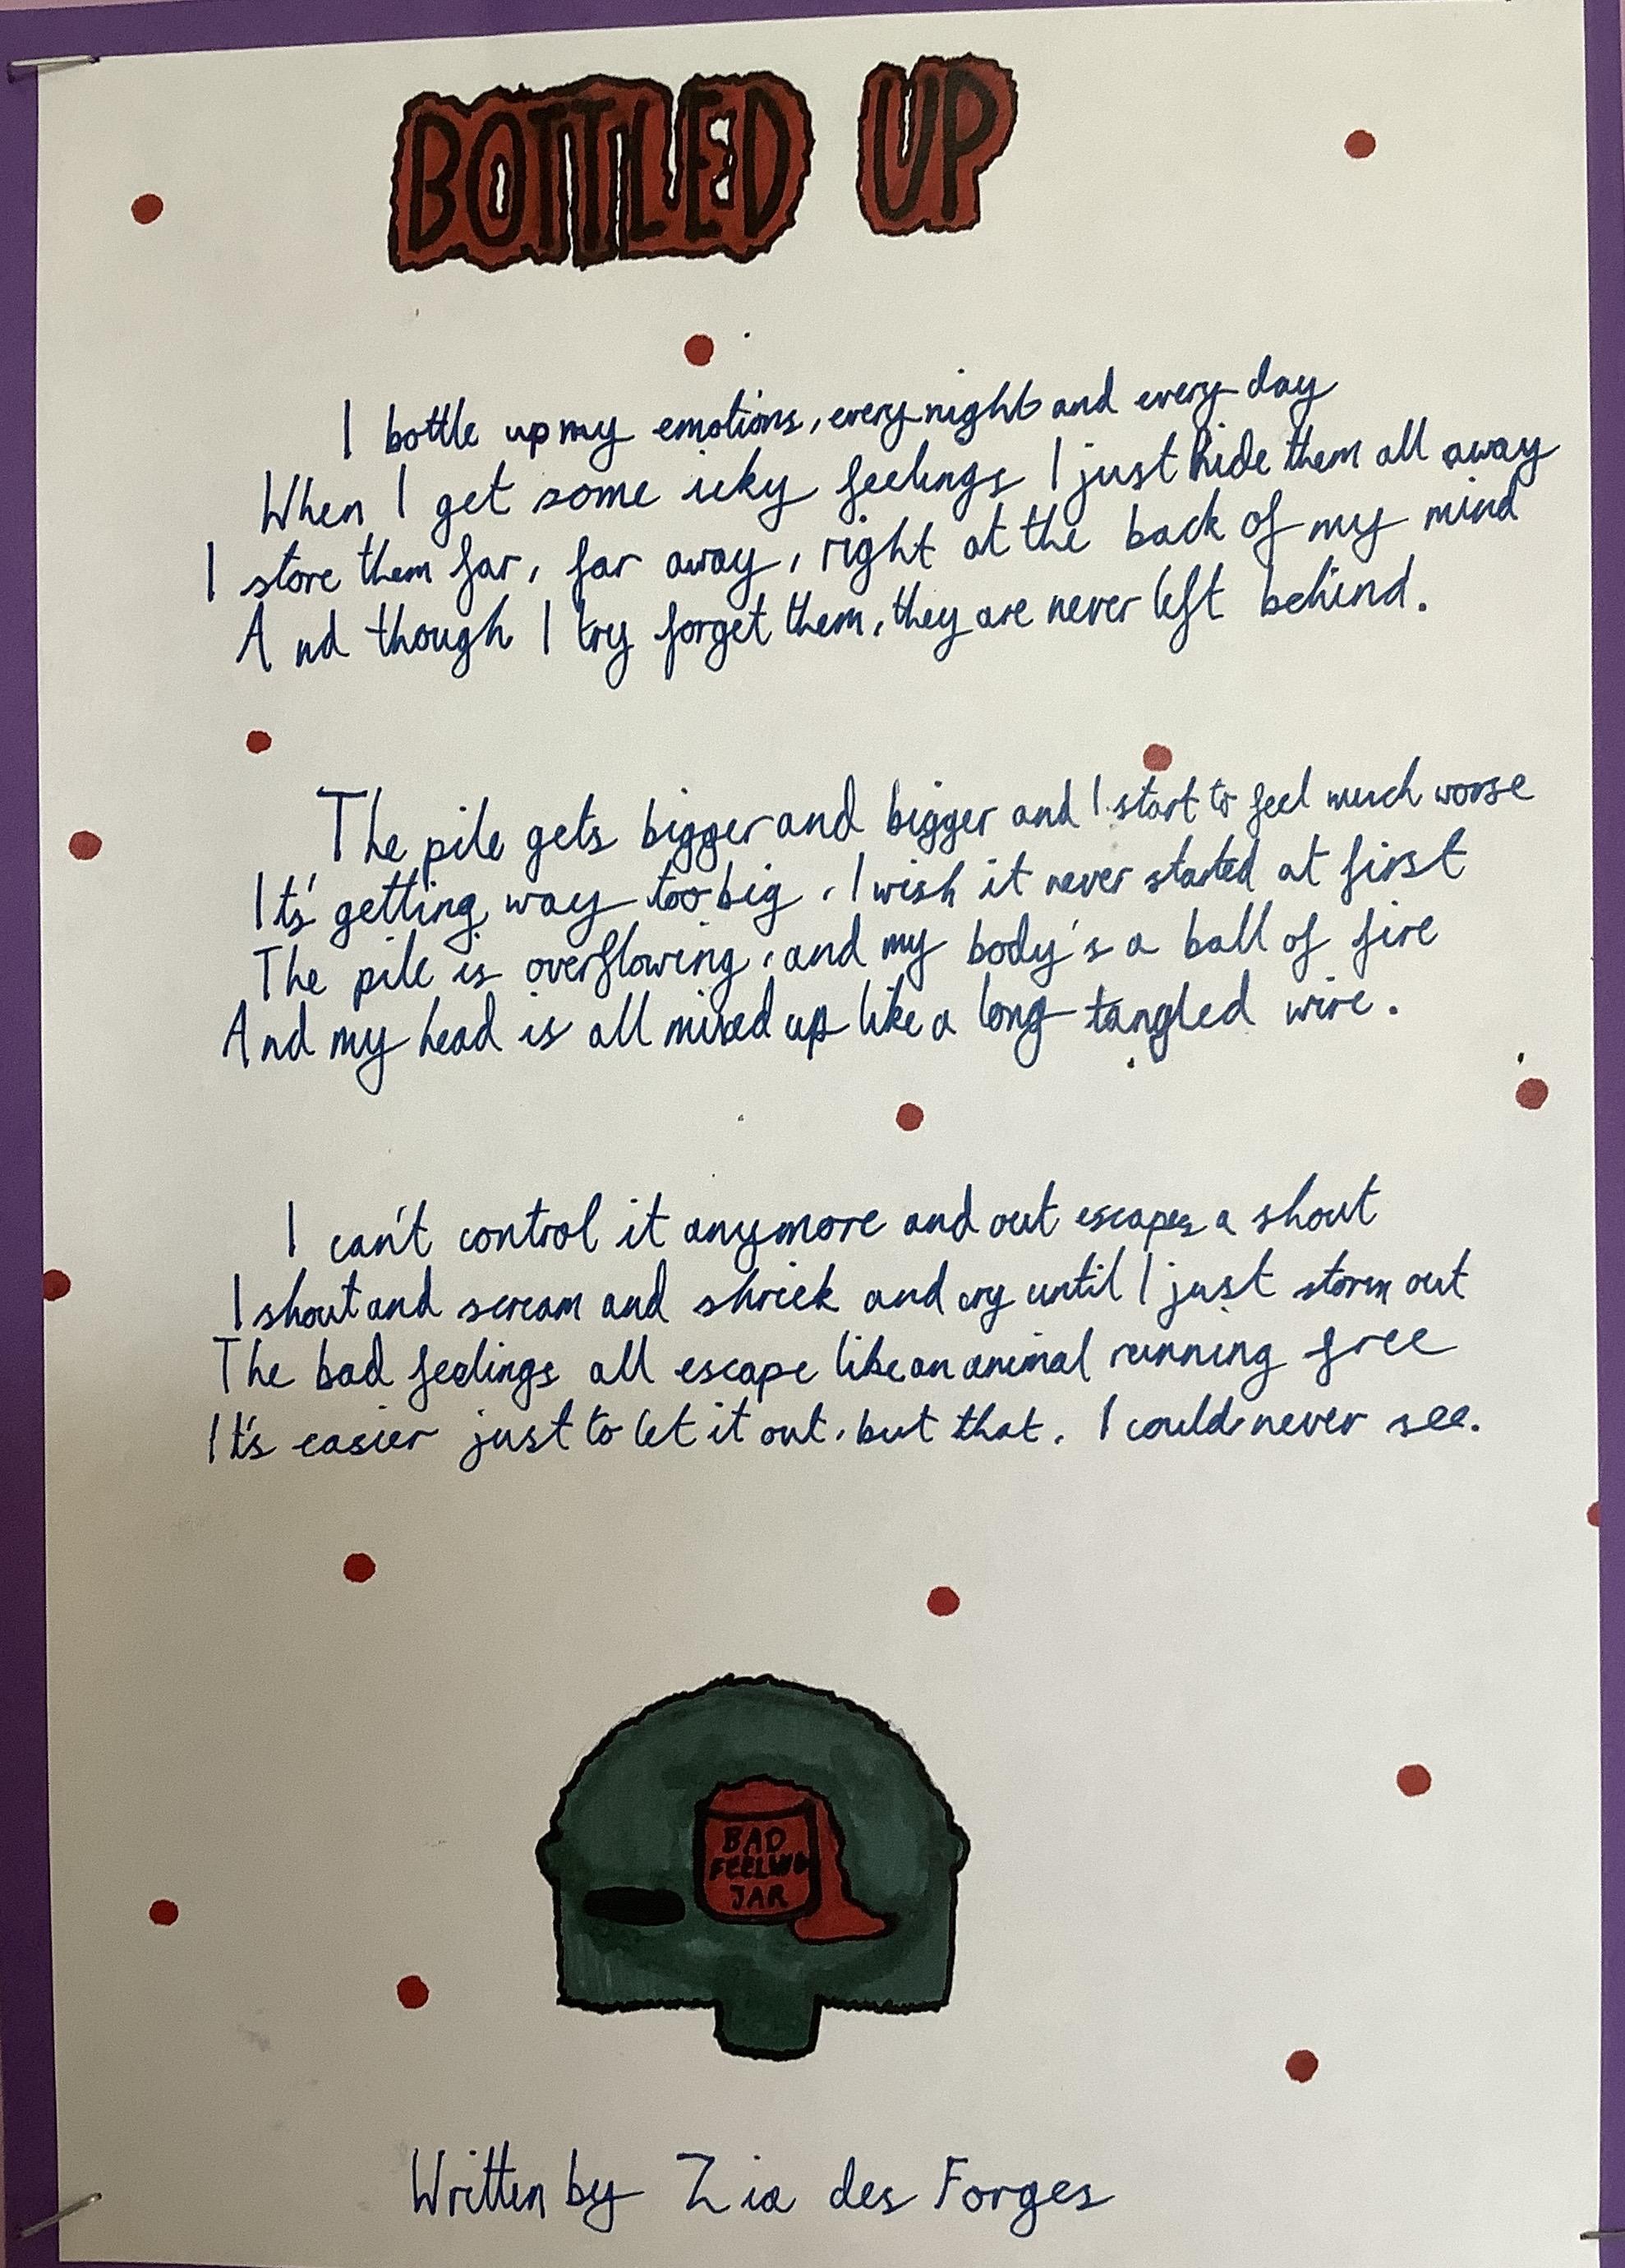 BOTTLED UP
I bottle up my emotions, every night and every day
When I get some icky feelings I just hide them all away
I store them far, far away, right at the back of my mind
And though I try forget them, they are never left behind.
The pile gets bigger and bigger and I start to feel much worse
It's getting way too big, I wish it never started at first
The pile is overflowing, and my body's a ball of fire
And my head is all mixed up like a long tangled wire.
I can't control it anymore and out escapes a shout
I shout and scream and shriek and cry until I just storm out
The bad feelings all escape like an animal running free
It's easier just to let it out, but that, I could never see.
BAD
FEELING
JAR
Written by Zia des Forges